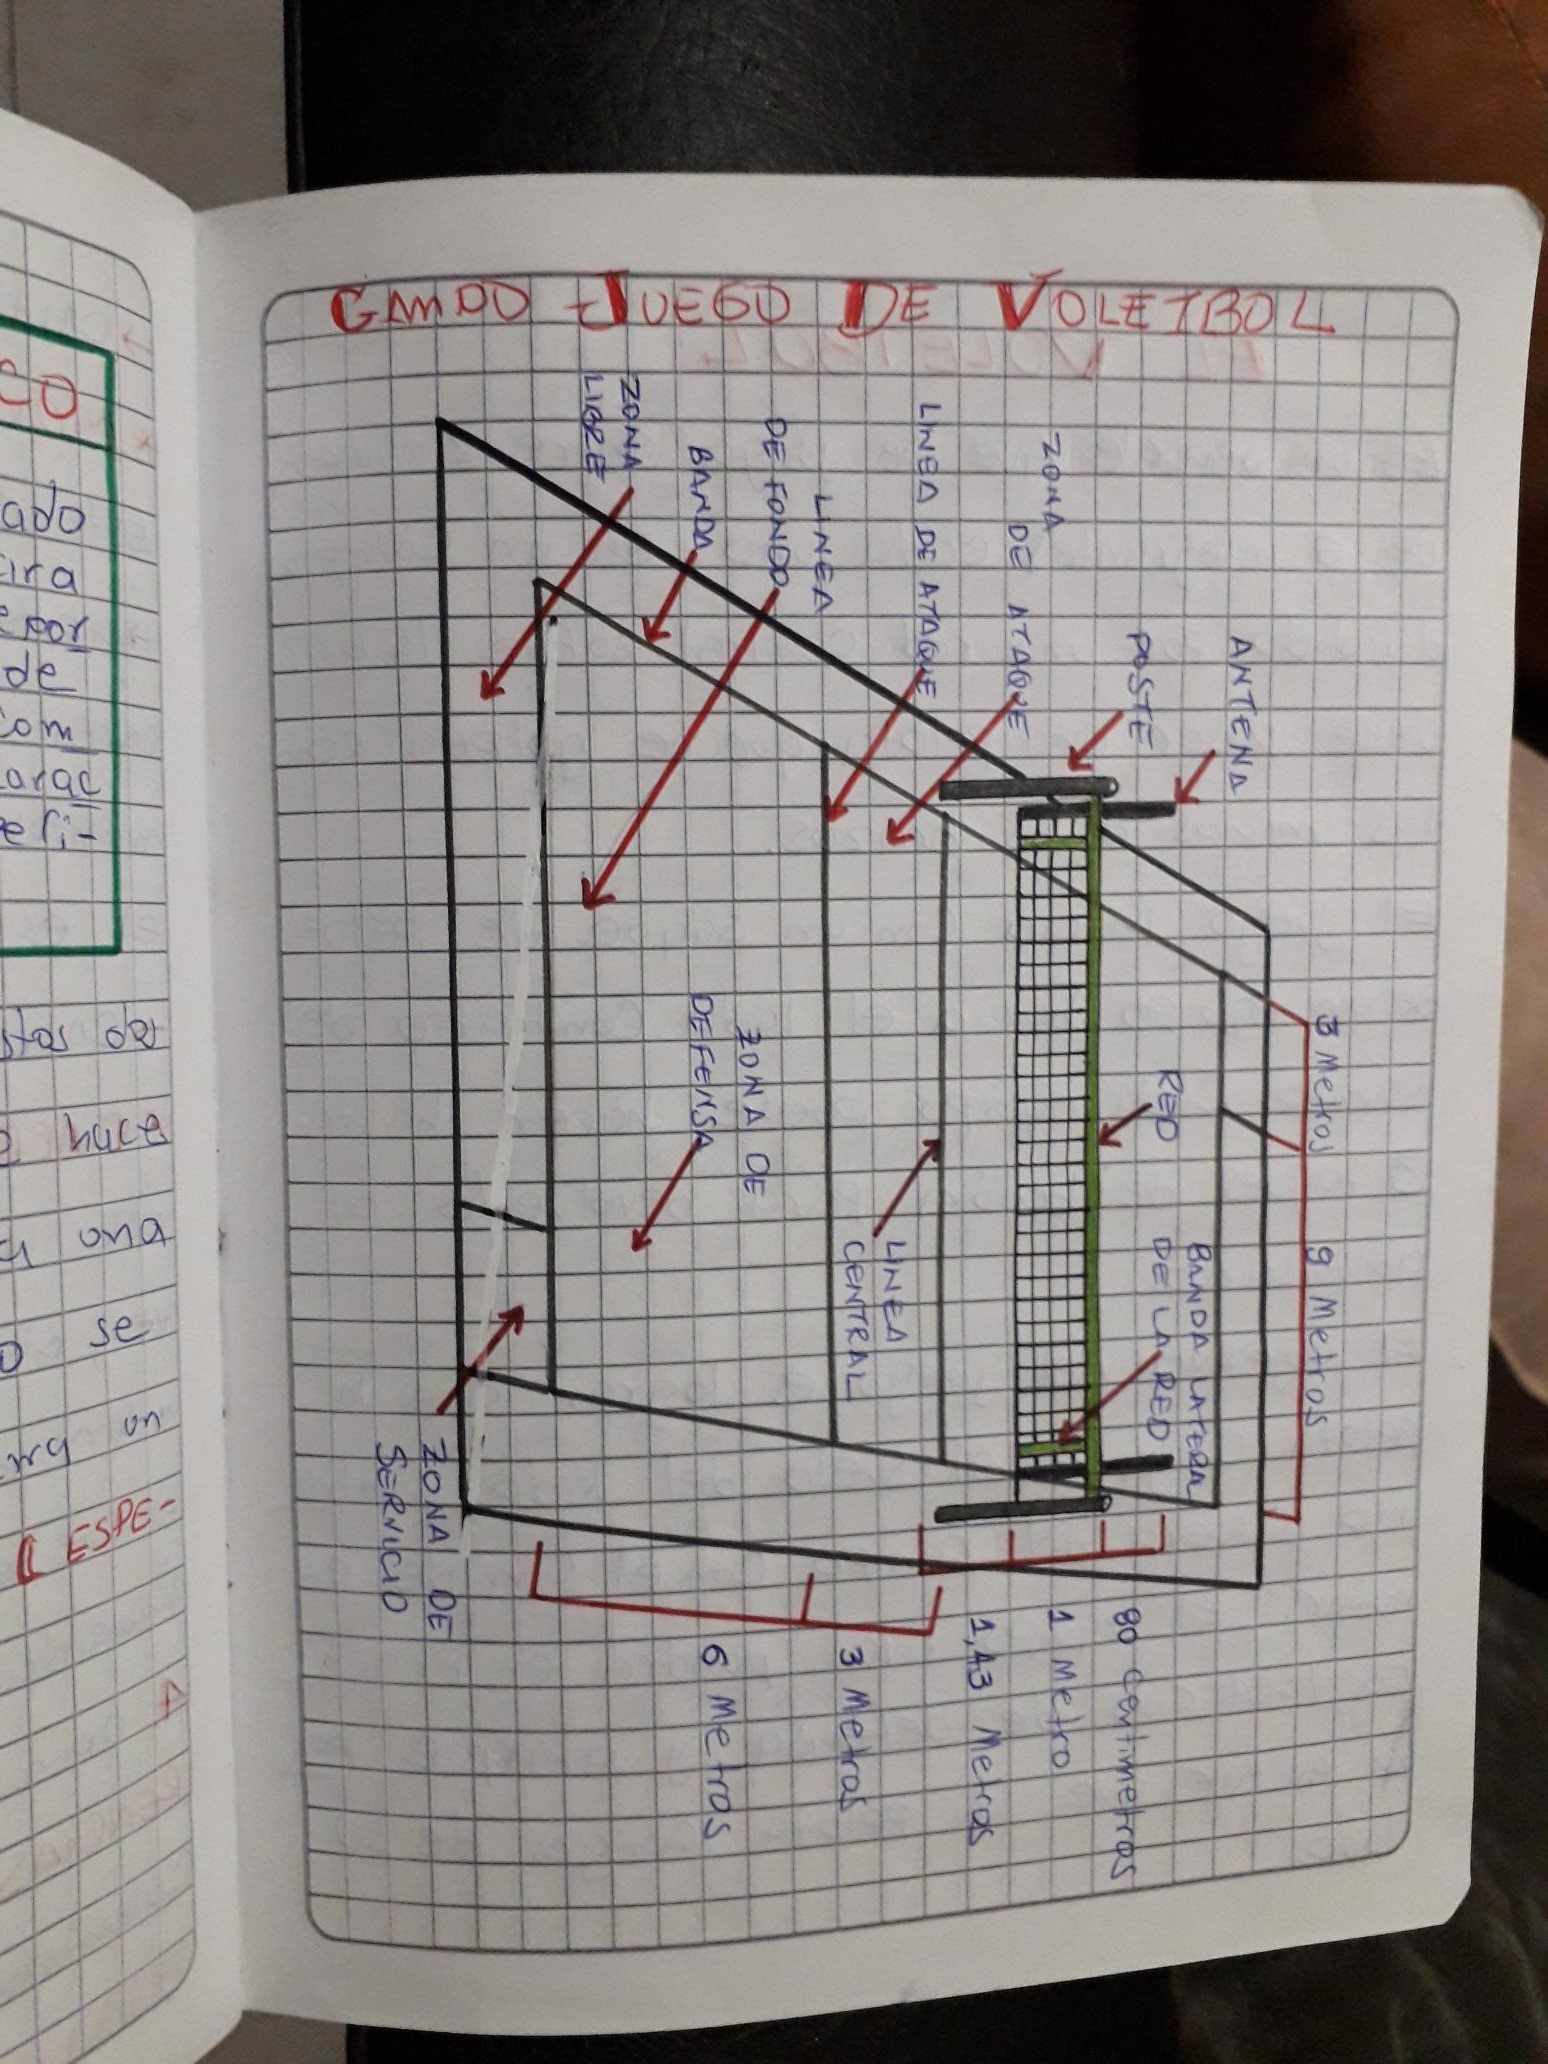 GAMDO - JUEGO DE VOLEIBOL
ANTENA
POSTE
ZONA
DE ATAQUE
LINEA DE ATAQUE
LINEA
DE FONDO
BANDA
ZONA
LIBRE
3 Metros
9 Metros
RED
BANDA LATERA
DE LA RED
LINEA
CENTRAL
ZONA DE
DEFENSA
ZONA DE
SERVICIO
80 centimetros
1 Metro
1,43 Metros
3 Metros
6 Metros
CO
ado
de
com
orac
eri-
huce
una
se
un
ESPE-